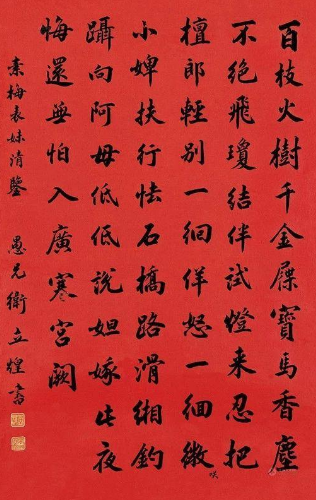 百枝火樹千金屧寶馬香塵
不絕飛瓊結伴試燈来忍把
檀郎輕別一徊佯怒一徊微
小婢扶行怯石橋路滑緗鈎
躡向阿母低低說妲嫁先夜
悔還無怕入廣寒宮闕
素梅表妹清鑒 愚兄衛立煌書